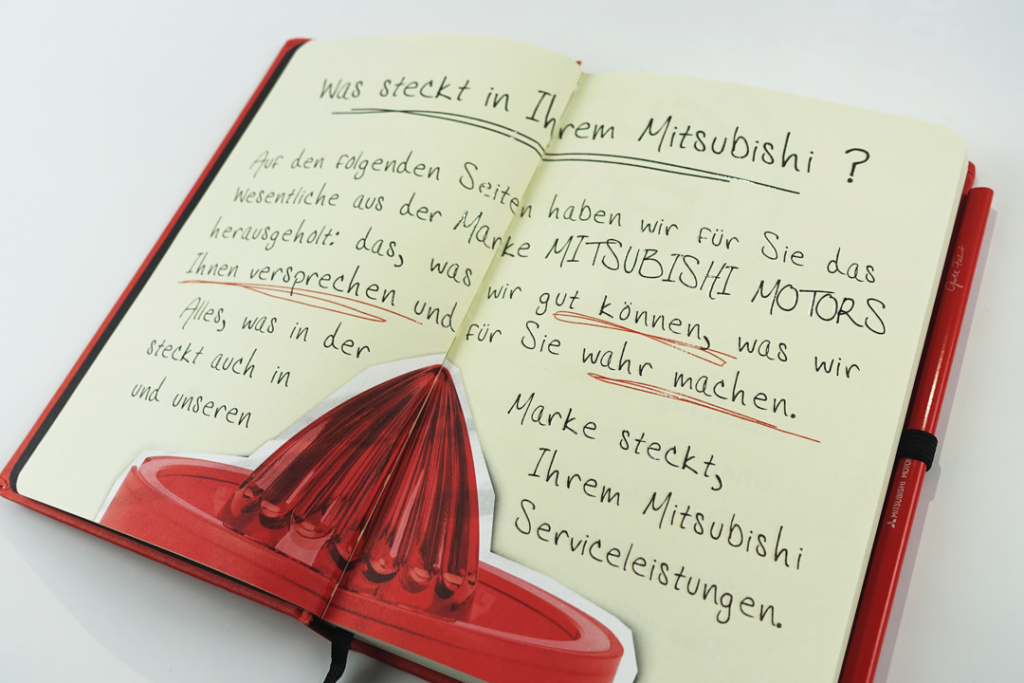 Was steckt in Ihrem Mitsubishi ?
Auf den folgenden Seiten haben wir für Sie das
Wesentliche aus der Marke MITSUBISHI MOTORS
herausgeholt: das, was wir gut können, was wir
Ihnen versprechen und für Sie wahr machen.
Alles, was in der Marke steckt,
steckt auch in Ihrem Mitsubishi
und unseren Serviceleistungen.
MITSUBISHI MOTORS